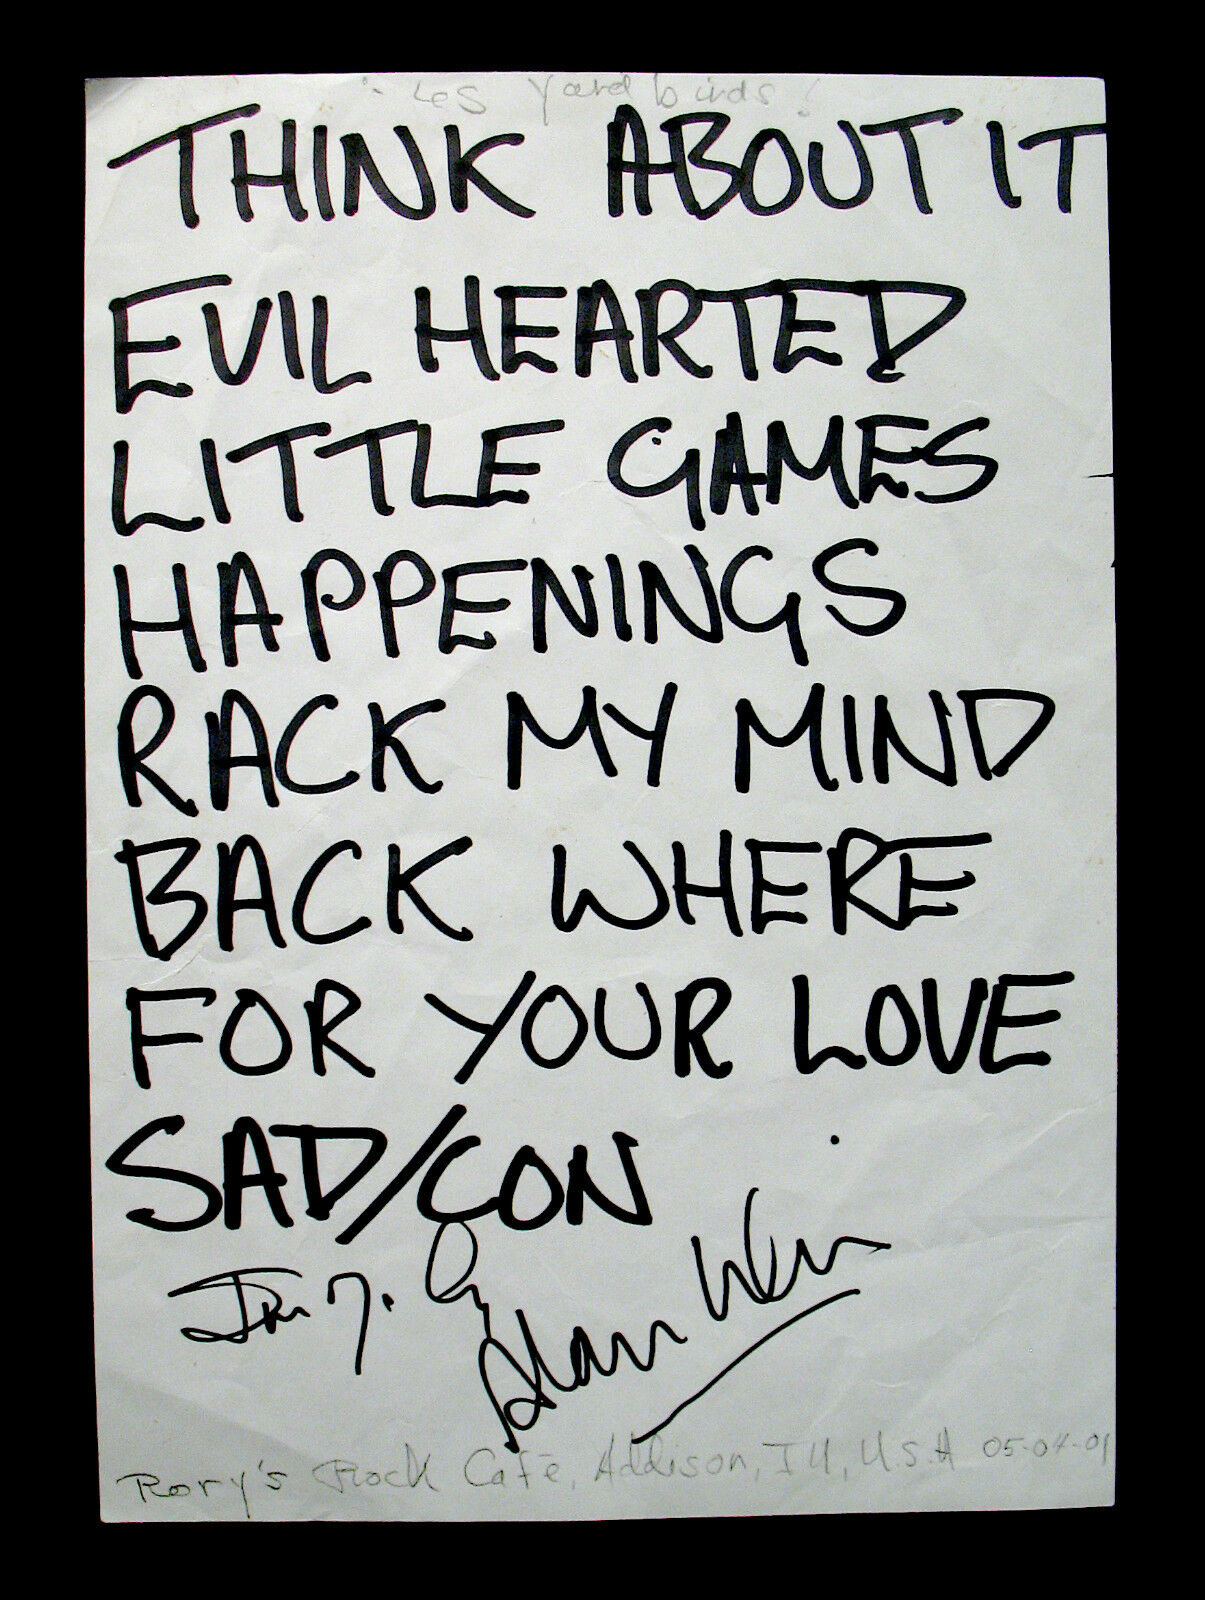 Les Yardbirds!
THINK ABOUT IT
EVIL HEARTED
LITTLE GAMES
HAPPENINGS
RACK MY MIND
BACK WHERE
FOR YOUR LOVE
SAD/CON
Alan
Rory's Rock Café, Addison, Ill, U.S.A 05-04-01